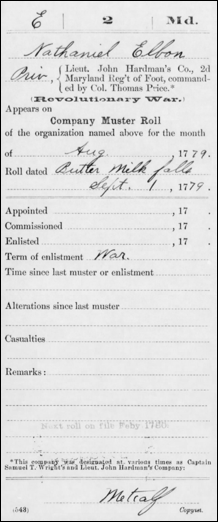 E 2 Md.
Nathaniel Elbon
Priv, Lieut. John Hardman's Co., 2d
Maryland Reg't of Foot, command-
ed by Col. Thomas Price.*
(Revolutionary War.)
Appears on
Company Muster Roll
of the organization named above for the month
of Aug, 1779.
Roll dated Butter Milk falls
Sept. 1, 1779.
Appointed, 17 .
Commissioned, 17 .
Enlisted, 17 .
Term of enlistment War.
Time since last muster or enlistment
Alterations since last muster
Casualties
Remarks:
Next roll on file Feby 1780.
*This company was designated at various times as Captain
Samuel T. Wright's and Lieut. John Hardman's Company:
Metcalf
(543) Copyist.